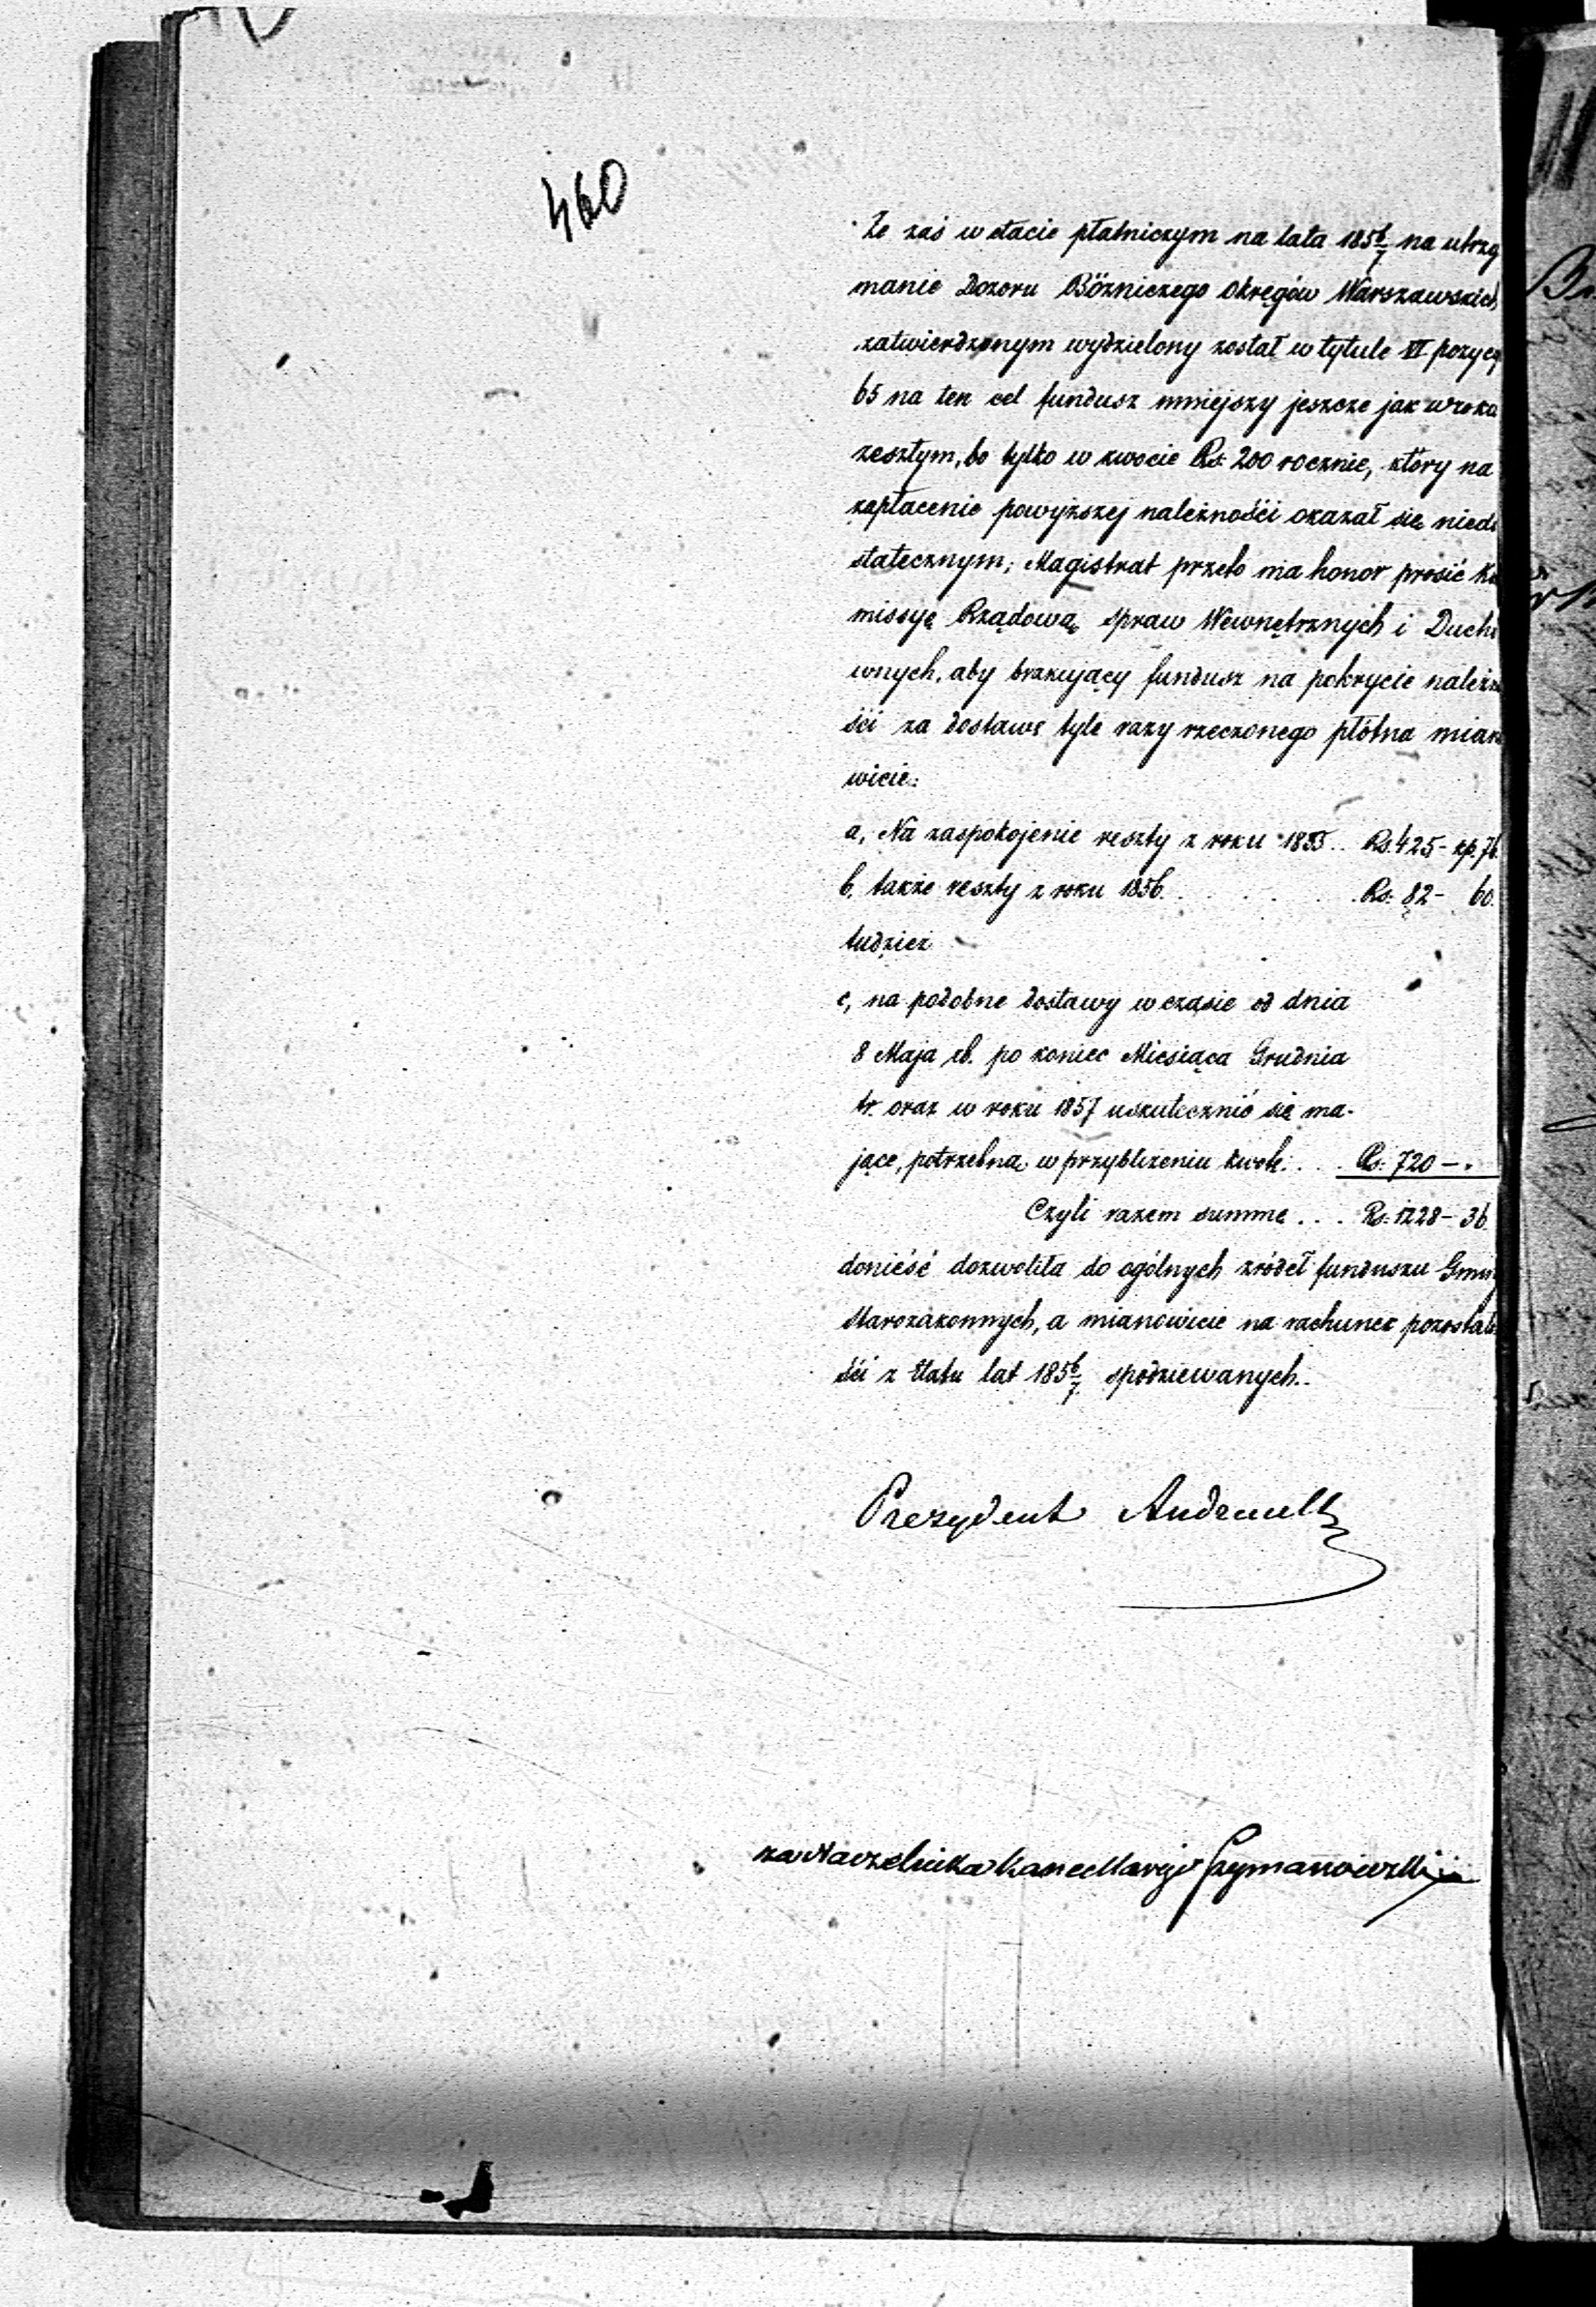 460
Że zaś w etacie płatniczym na lata 185 6/7 na utrzy
manie Dozoru Bóżniczego Okręgów Warszawskich
zatwierdzonym wydzielony został w tytule VI pozycyi
65 na ten cel fundusz mniejszy jeszcze jak w roku
zeszłym, bo tylko w kwocie Rs: 200 rocznie, który na
zapłacenie powyższej należnośći okazał się niedo
statecznym; Magistrat przeto ma honor prosić Ko
missyę Rządową Spraw Wewnętrznych i Ducho
wnych, aby brakujący fundusz na pokrycie należno
śći za dostawę tyle razy rzeczonego płótna miano
wicie:
a, Na zaspokojenie reszty z roku 1855.. Rs. 425 - kp. 76.
b, także reszty z roku 1856. . . . . . Rs: 82 - 60.
tudzież
c, na podobne dostawy w czasie od dnia
8 Maja rb. po koniec Miesiąca Grudnia
tr. oraz w roku 1857 uskutecznić się ma-
jące, potrzebną w przybliżeniu kwotę. . . . Rs: 720 - .
Czyli razem summę . . . Rs: 1228 - 36
donieść dozwoliła do ogólnych źródeł funduszu Gminy
Starozakonnych, a mianowicie na rachunek pozostało
śći z Etatu lat 185 6/7 spodziewanych..
Prezydent Andrault
za Naczelnika Kancellaryi Szymanowski